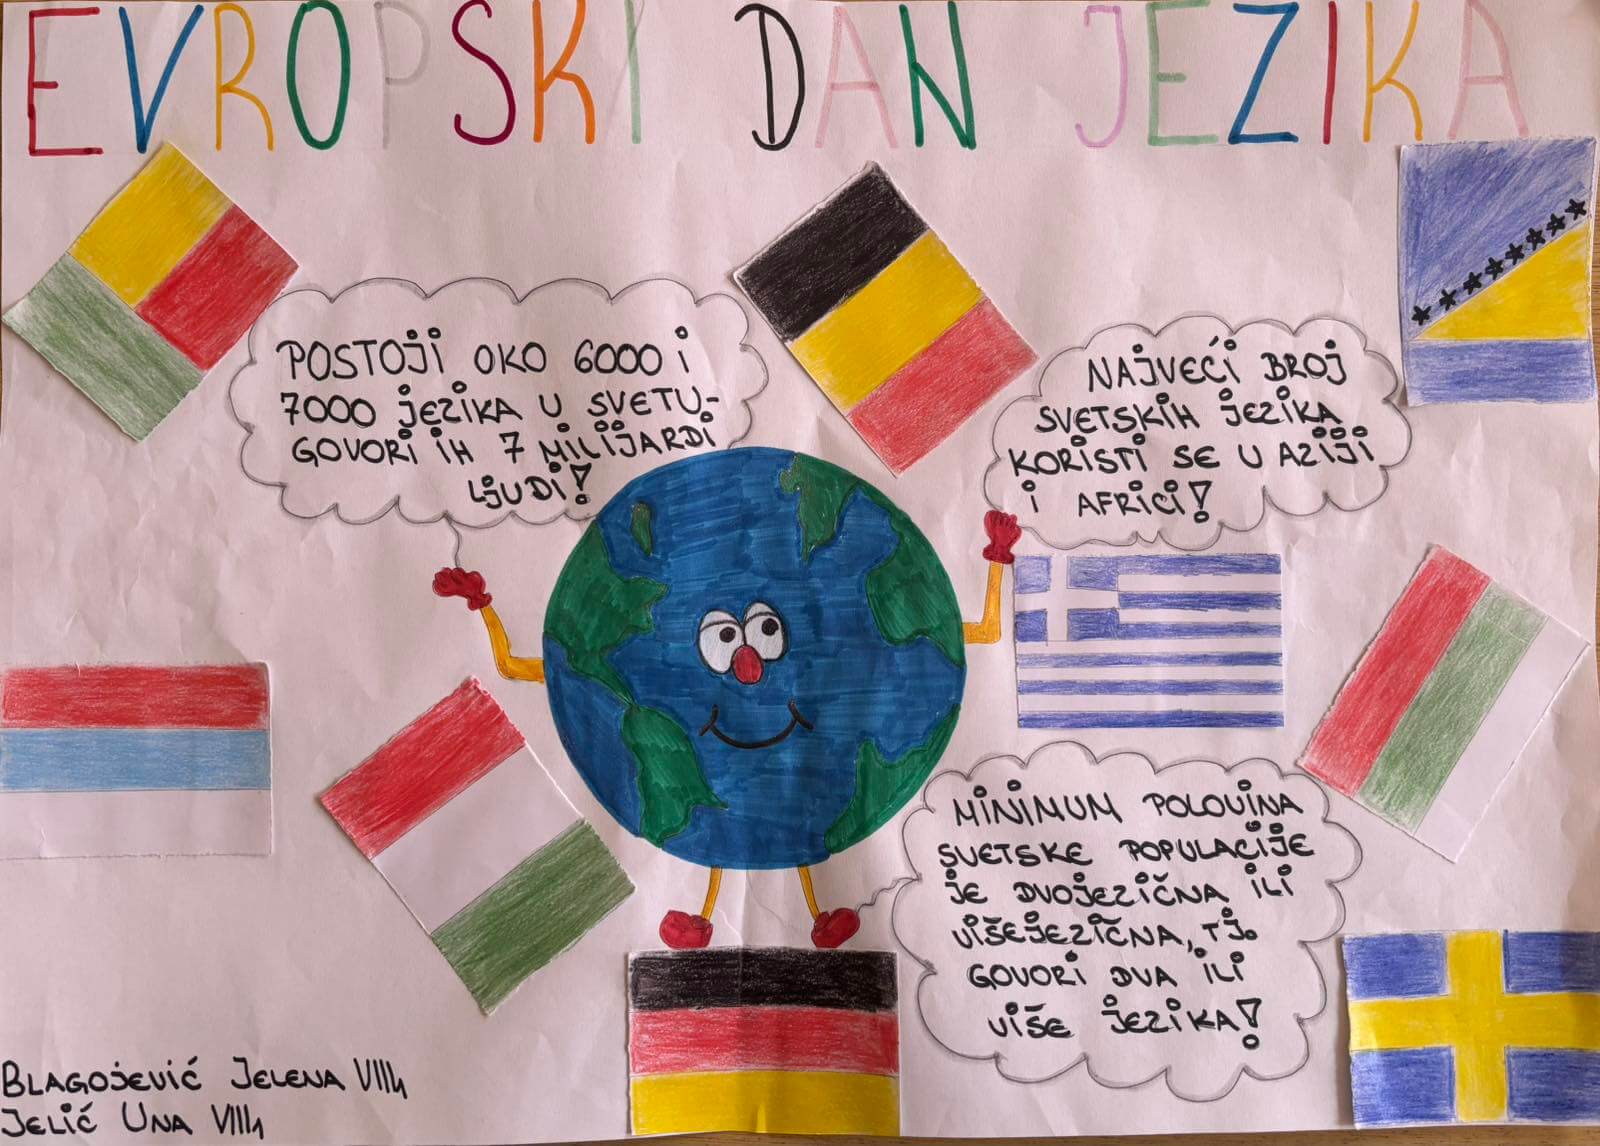 EVROPSKI DAN JEZIKA
POSTOJI OKO 6000 i
7000 JEZIKA U SVETU-
GOVORI IH 7 MILIJARDI
LJUDI!
NAJVEĆI BROJ
SVETSKIH JEZIKA
KORISTI SE U AZIJI
i AFRICI!
MINIMUM POLOVINA
SVETSKE POPULACIJE
JE DVOJEZIČNA ILI
VIŠEJEZIČNA, TJ.
GOVORI DVA ILI
VIŠE JEZIKA!
BLAGOJEVIĆ JELENA VIII4
JELIĆ UNA VIII4